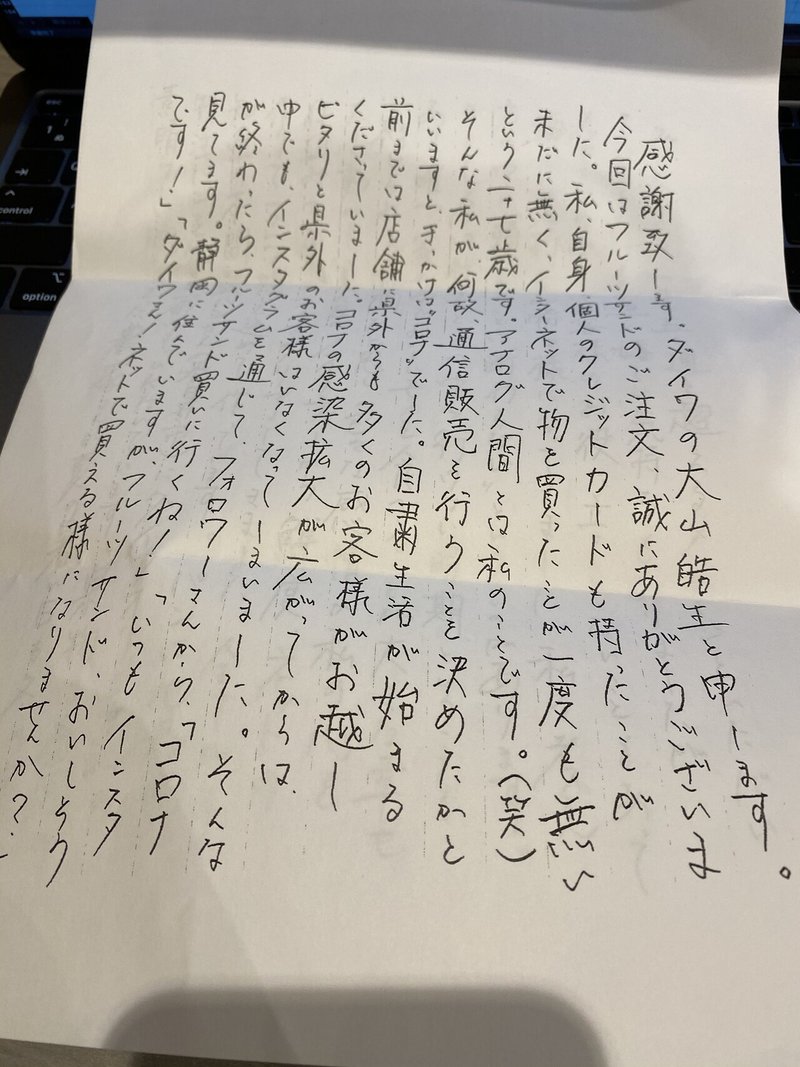 感謝致します。ダイワの大山皓生と申します。
今回はフルーツサンドのご注文、誠にありがとうございま
した。私、自身、個人のクレジットカードも持ったことが
未だに無く、インターネットで物を買ったことが一度も無い
という二十七歳です。アナログ人間とは私のことです。(笑)
そんな私が、何故、通信販売を行うことを決めたかと
いいますと、きっかけは"コロナ"でした。自粛生活が始まる
前までは店舗に県外からも多くのお客様がお越し
くださっていました。コロナの感染拡大が広がってからは、
ピタリと県外のお客様はいなくなってしまいました。そんな
中でも、インスタグラムを通じて、フォロワーさんから、「コロナ
が終わったら、フルーツサンド買いに行くね!」「いつもインスタ
見てます。静岡に住んでいますが、フルーツサンド、おいしそう
です!」「ダイワさん!ネットで買える様になりませんか?」
control
option